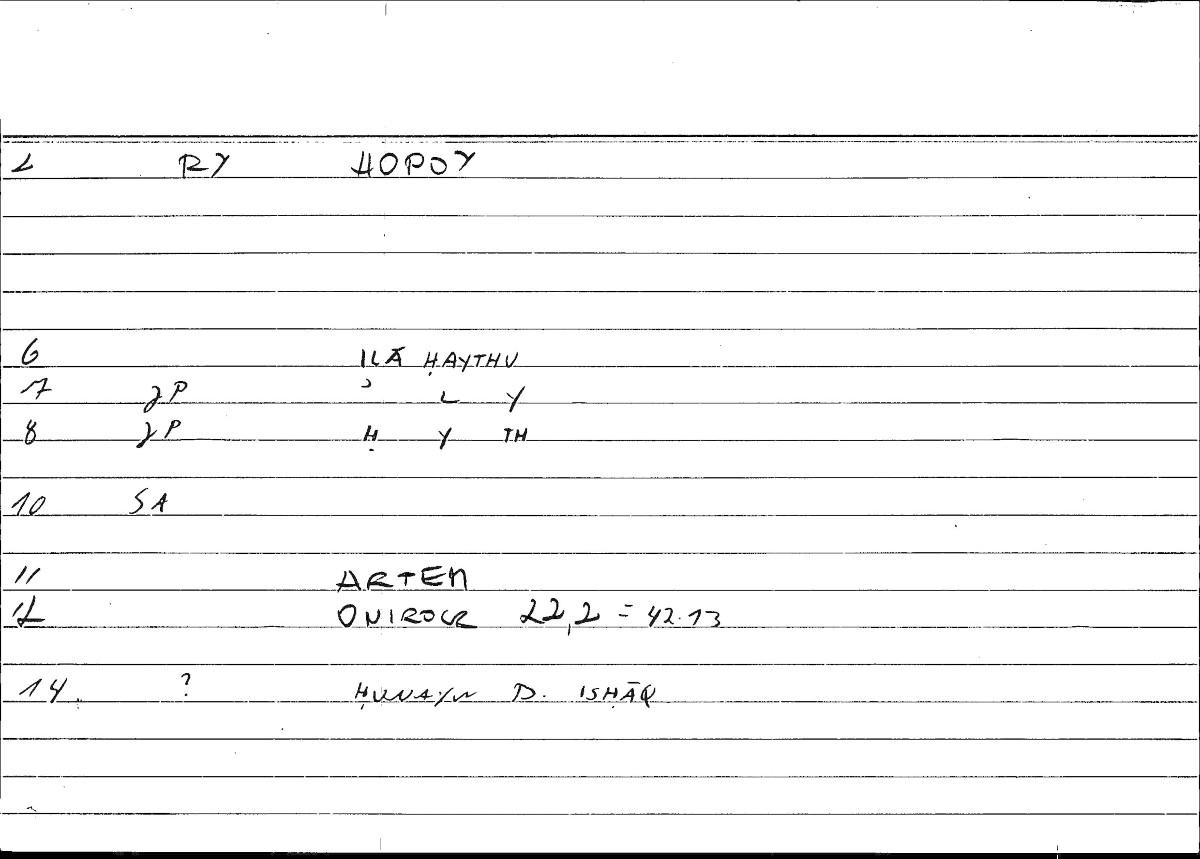 2 RY ḤOPOY
6 ILĀ ḤAYTHU
7 γP ʾ L Y
8 γP Ḥ Y TH
10 SA
11 ARTEM
12 ONIROCR 22,2 = 42.13
14. ? ḤUNAYN B. ISḤĀQ